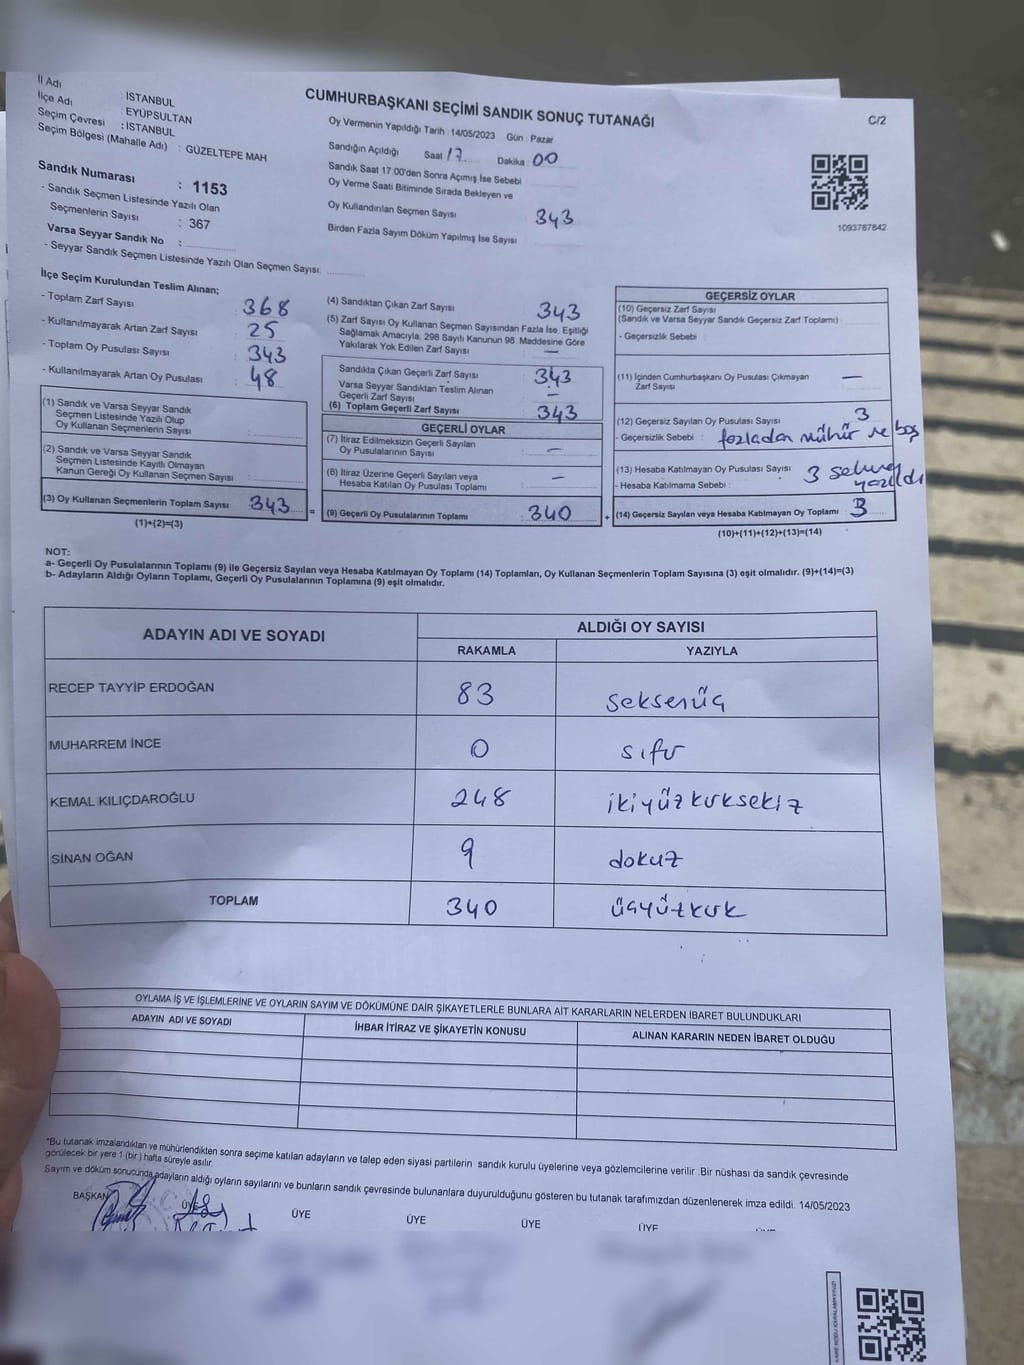 CUMHURBAŞKANI SEÇİMİ SANDIK SONUÇ TUTANAĞI
C/2
İl Adı : İSTANBUL
İlçe Adı : EYÜPSULTAN
Seçim Çevresi : İSTANBUL
Seçim Bölgesi (Mahalle Adı) : GÜZELTEPE MAH
Sandık Numarası : 1153
- Sandık Seçmen Listesinde Yazılı Olan
Seçmenlerin Sayısı : 367
Varsa Seyyar Sandık No :
- Seyyar Sandık Seçmen Listesinde Yazılı Olan Seçmen Sayısı:
Oy Vermenin Yapıldığı Tarih : 14/05/2023 Gün : Pazar
Sandığın Açıldığı Saat 17 Dakika : 00
Sandık Saat 17:00'den Sonra Açımış İse Sebebi
Oy Verme Saati Bitiminde Sırada Bekleyen ve
Oy Kullandırılan Seçmen Sayısı 343
Birden Fazla Sayım Döküm Yapılmış İse Sayısı
1093787842
İlçe Seçim Kurulundan Teslim Alınan;
- Toplam Zarf Sayısı : 368
- Kullanılmayarak Artan Zarf Sayısı : 25
- Toplam Oy Pusulası Sayısı : 343
- Kullanılmayarak Artan Oy Pusulası : 48
(1) Sandık ve Varsa Seyyar Sandık
Seçmen Listesinde Yazılı Olup
Oy Kullanan Seçmenlerin Sayısı :
(2) Sandık ve Varsa Seyyar Sandık
Seçmen Listesinde Kayıtlı Olmayan
Kanun Gereği Oy Kullanan Seçmen Sayısı :
(3) Oy Kullanan Seçmenlerin Toplam Sayısı : 343
(1)+(2)=(3)
(4) Sandıktan Çıkan Zarf Sayısı : 343
(5) Zarf Sayısı Oy Kullanan Seçmen Sayısından Fazla İse, Eşitliği
Sağlamak Amacıyla, 298 Sayılı Kanunun 98. Maddesine Göre
Yakılarak Yok Edilen Zarf Sayısı : —
Sandıkta Çıkan Geçerli Zarf Sayısı : 343
Varsa Seyyar Sandıktan Teslim Alınan
Geçerli Zarf Sayısı : —
(6) Toplam Geçerli Zarf Sayısı : 343
GEÇERLİ OYLAR
(7) İtiraz Edilmeksizin Geçerli Sayılan
Oy Pusulasının Sayısı : —
(8) İtiraz Üzerine Geçerli Sayılan veya
Hesaba Katılan Oy Pusulası Toplamı : —
(9) Geçerli Oy Pusulalarının Toplamı : 340
GEÇERSİZ OYLAR
(10) Geçersiz Zarf Sayısı
(Sandık ve Varsa Seyyar Sandık Geçersiz Zarf Toplamı) :
- Geçersizlik Sebebi :
(11) İçinden Cumhurbaşkanı Oy Pusulası Çıkmayan —
Zarf Sayısı
(12) Geçersiz Sayılan Oy Pusulası Sayısı : 3
- Geçersizlik Sebebi : fazladan mühür ve boş
(13) Hesaba Katılmayan Oy Pusulası Sayısı : 3
- Hesaba Katılmama Sebebi : yazıldı
(14) Geçersiz Sayılan veya Hesaba Katılmayan Oy Toplamı : 3
(10)+(11)+(12)+(13)=(14)
NOT:
a- Geçerli Oy Pusulalarının Toplamı (9) ile Geçersiz Sayılan veya Hesaba Katılmayan Oy Toplamı (14) Toplamları, Oy Kullanan Seçmenlerin Toplam Sayısına (3) eşit olmalıdır. (9)+(14)=(3)
b- Adayların Aldığı Oyların Toplamı, Geçerli Oy Pusulalarının Toplamına (9) eşit olmalıdır.
ADAYIN ADI VE SOYADI ALDIĞI OY SAYISI
RAKAMLA YAZIYLA
RECEP TAYYİP ERDOĞAN 83 seksenüç
MUHARREM İNCE 0 sıfır
KEMAL KILIÇDAROĞLU 248 ikiyüzkırksekiz
SİNAN OĞAN 9 dokuz
TOPLAM 340 üçyüzkırk
OYLAMA İŞ VE İŞLEMLERİNE VE OYLARIN SAYIM VE DÖKÜMÜNE DAİR ŞİKAYETLERLE BUNLARA AİT KARARLARIN NELERDEN İBARET BULUNDUKLARI
ADAYIN ADI VE SOYADI İHBAR İTİRAZ VE ŞİKAYETİN KONUSU ALINAN KARARIN NEDEN İBARET OLDUĞU
*Bu tutanak imzalandıktan ve mühürlendikten sonra seçime katılan adayların ve talep eden siyasi partilerin sandık kurulu üyelerine veya gözlemcilerine verilir .Bir nüshası da sandık çevresinde
görülecek bir yere 1 (bir ) hafta süreyle asılır.
Sayım ve döküm sonucunda adayların aldığı oyların sayılarını ve bunların sandık çevresinde bulunanlara duyurulduğunu gösteren bu tutanak tarafımızdan düzenlenerek imza edildi. 14/05/2023
BAŞKAN ÜYE ÜYE ÜYE ÜYE ÜYE